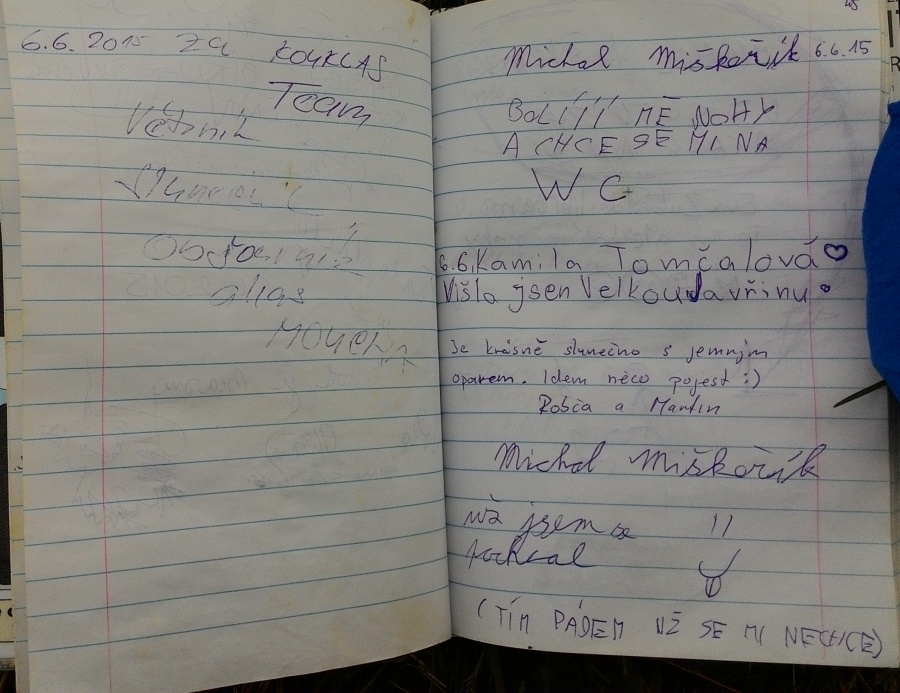 6.6. 2015 za KOUKLAS
Team
Větřník
alias
MOUCHA
Michal Miškořík 6.6.15
BOLÍÍÍ MĚ NOHY
A CHCE SE MI NA
WC
6.6. Kamila Tomčalová
Višla jsen Velkou Javřinu
Je krásně slunečno s jemným
oparem. Idem něco pojest :)
Robča a Martin
Michal Miškořík
už jsem se
(TÍM PÁDEM UŽ SE MI NECHCE)